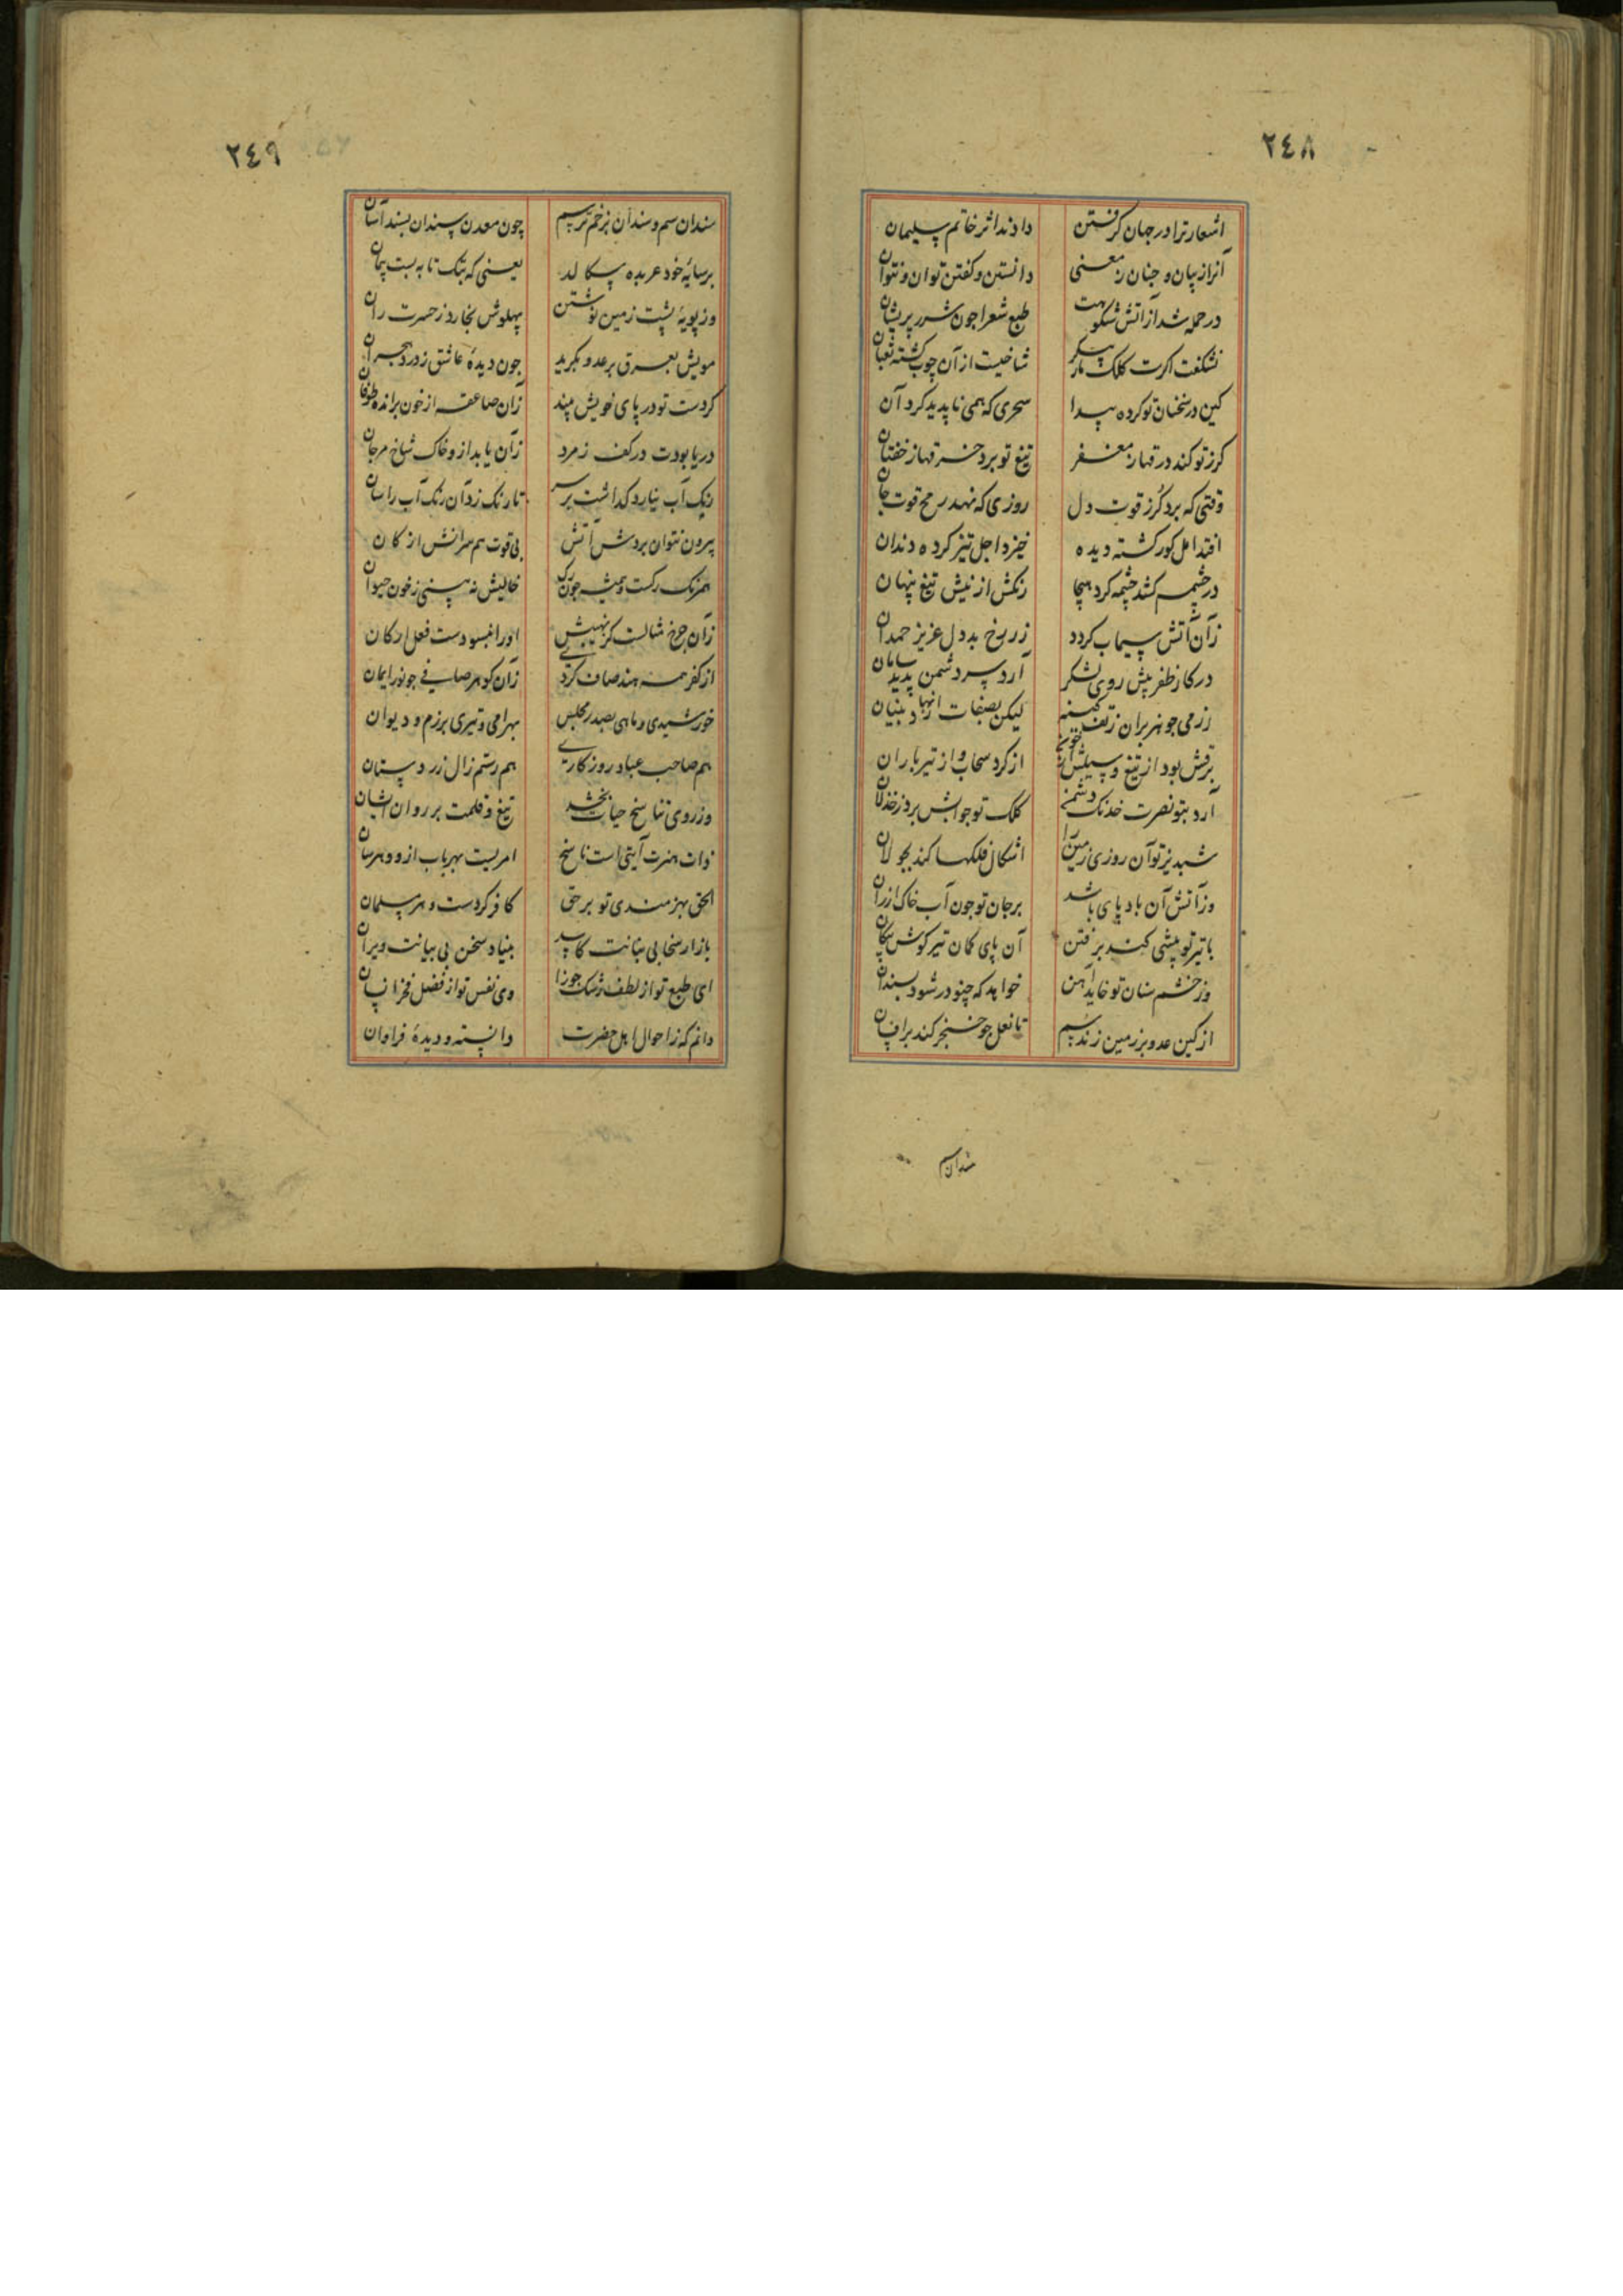 ٢٤٨
اشعار ترا در جهان گرفتن دادند اثر خاتم سلیمان
آنرا ز بیان و جنان ز معنی دانستن و گفتن توان و نتوان
در حمله شد از آتش شکوهت طبع شعرا چون شرر پریشان
نشکفت اگرت کلک مار پیکر شاخیست از آن چوب گشته ثعبان
کین در سخنان تو کرده پیدا سحری که همی ناپدید کرد آن
گرز تو کند در قهار مغفر تیغ تو برد خسر قها ز خفتان
وقتی که برد گرز قوت دل روزی که نهد رمح قوت جان
افتد امل کور گشته دیده خیزد اجل تیز کرده دندان
در چشمه کشد چشمه کرد هیجا رنگش از نیش تیغ پنهان
زآن آتش سیماب گردد زر رخ بددل عزیز حمدان
در کار ظفر پیش روی لشکر آرد سر دشمن پدید سامان
رزمی جو هزبران ز تف کینه لیکن بصفات انهاد بنیان
برقش بود از تیغ و سیلش از خون از گرد سحاب و از تیر باران
آرد بتو نصرت خدنگ دشمن کلک تو جوابش برد ز خذلان
شبدیز تو آن روزی زمین را اشکال فلکها کند بجولان
وز آتش آن باد پای باشد بر جان تو چون آب خاک ارزان
با تیر تو پیشی کند برفتن آن پای کمان تیر گوش پیکان
وز خشم سنان تو خاید آهن خواهد که چنو در شود بسندان
از کین عدو بر زمین زند سم تا نعل چو خنجر کند بر افسان
سندان سم
٢٤٩
سندان سم و سندان بزخم ترسم چون معدن سندان بسند آسان
بر سایهٔ خود عربده سکالد یعنی که بتک تا به بست پیمان
وز پویهٔ پشت زمین نوشتن پهلوش نخارد ز حسرت ران
مویش بعرق بر عدو بگرید چون دیدهٔ عاشق ز درد هجران
کردست تو در پای خویش بیند زان صاعقه از خون براند طوفان
دریا بودت در کف زمرد زان یابد ازو خاک شاخ مرجان
رنگ آب نیارد گذاشت بر سر تا رنگ زد آن رنگ آب را سان
بیرون نتوان بردش آتش بی قوت هم سرانش از کان
همرنگ رگست و همیشه چون رگ خالیش نه بینی ز خون حیوان
زان چرخ مثالست کز نهیبش او را نبسودست فعل ارکان
از کفر همه هند صاف کردی زان گوهر صافی چو نور ایمان
خورشیدی و ماهی بصدر مجلس بهرامی و تیری برزم و دیوان
هم صاحب عباد روزگاری هم رستم زال زر دستان
وز روی تناسخ حیات بخشد تیغ و قلمت بر روان ایشان
ذات هنرت آیتی است ناسخ امریست بهر باب ازو و هرسان
الحق بهنرمندی تو بر حق کافر گردست و هر مسلمان
بازار سخا بی بنانت کاسد بنیاد سخن بی بیانت ویران
ای طبع تو از لطف رشک جوزا وی نفس تو از فضل فخر انسان
دانم که ز احوال اهل حضرت دانسته و دیدهٔ فراوان